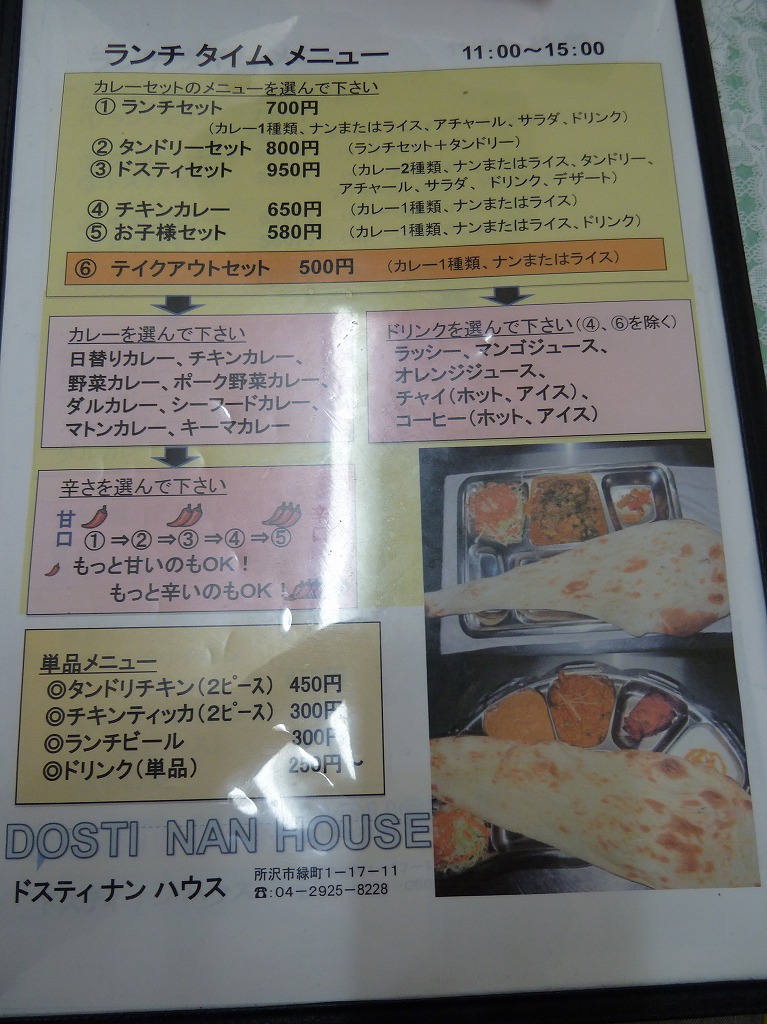 ランチ タイム メニュー 11:00～15:00
カレーセットのメニューを選んで下さい
① ランチセット 700円
（カレー1種類、ナンまたはライス、アチャール、サラダ、ドリンク）
② タンドリーセット 800円 （ランチセット＋タンドリー）
③ ドスティセット 950円 （カレー2種類、ナンまたはライス、タンドリー、
アチャール、サラダ、 ドリンク、デザート）
④ チキンカレー 650円 （カレー1種類、ナンまたはライス）
⑤ お子様セット 580円 （カレー1種類、ナンまたはライス、ドリンク）
⑥ テイクアウトセット 500円 （カレー1種類、ナンまたはライス）
カレーを選んで下さい
日替りカレー、チキンカレー、
野菜カレー、ポーク野菜カレー、
ダルカレー、シーフードカレー、
マトンカレー、キーマカレー
ドリンクを選んで下さい（④、⑥を除く）
ラッシー、マンゴジュース、
オレンジジュース、
チャイ（ホット、アイス）、
コーヒー（ホット、アイス）
辛さを選んで下さい
甘口 ①⇒②⇒③⇒④⇒⑤ 辛口
もっと甘いのもOK！
もっと辛いのもOK！
単品メニュー
◎タンドリチキン（2ﾋﾟｰｽ） 450円
◎チキンティッカ（2ﾋﾟｰｽ） 300円
◎ランチビール 300円
◎ドリンク（単品） 250円～
DOSTI NAN HOUSE
ドスティ ナン ハウス
所沢市緑町1－17－11
☎:04－2925－8228